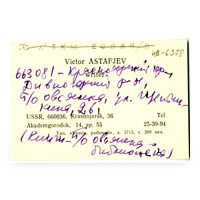 нв-6378
Victor ASTAFJEV
663081 - Красноярский кр.,
writer
Дивногорский р-н,
п/о Овсянка, ул. Щетин-
кина, 26
USSR, 660036, Krasnojarsk, 36 Tel.
Akademgorodok, 14, ap. 55 25-39-94
(Книги - п/о Овсянка -
библиотека)